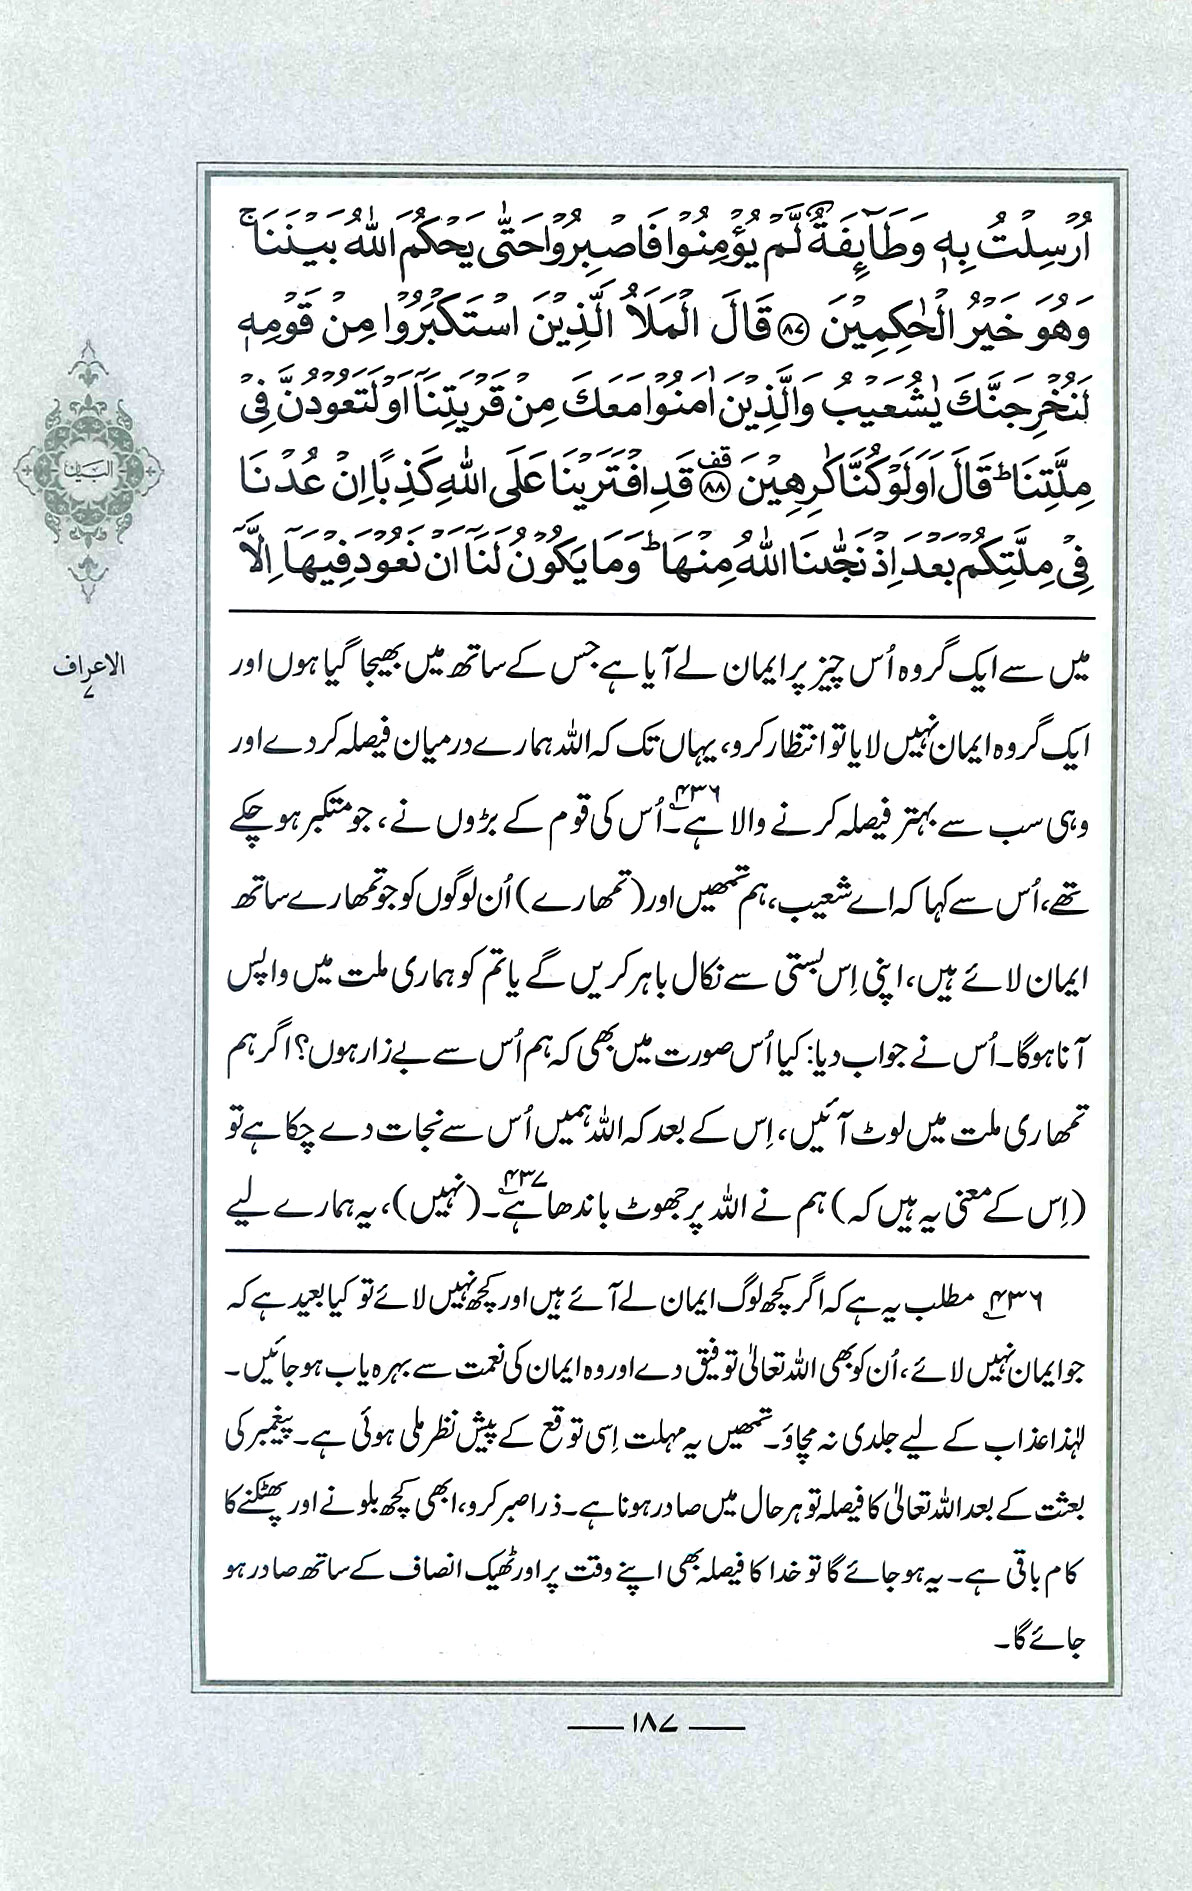 اُرْسِلْتُ بِهٖ وَطَآئِفَةٌ لَّمْ يُؤْمِنُوْا فَاصْبِرُوْا حَتّٰى يَحْكُمَ اللّٰهُ بَيْنَنَا ۚ
وَهُوَ خَيْرُ الْحٰكِمِيْنَ ﴿۸۷﴾ قَالَ الْمَلَاُ الَّذِيْنَ اسْتَكْبَرُوْا مِنْ قَوْمِهٖ
لَنُخْرِجَنَّكَ يٰشُعَيْبُ وَالَّذِيْنَ اٰمَنُوْا مَعَكَ مِنْ قَرْيَتِنَآ اَوْ لَتَعُوْدُنَّ فِيْ
مِلَّتِنَا ؕ قَالَ اَوَلَوْ كُنَّا كٰرِهِيْنَ ﴿۸۸﴾ قف قَدِ افْتَرَيْنَا عَلَى اللّٰهِ كَذِبًا اِنْ عُدْنَا
فِيْ مِلَّتِكُمْ بَعْدَ اِذْ نَجّٰىنَا اللّٰهُ مِنْهَا ؕ وَمَا يَكُوْنُ لَنَآ اَنْ نَّعُوْدَ فِيْهَآ اِلَّآ
البیان
الاعراف
۷
میں سے ایک گروہ اُس چیز پر ایمان لے آیا ہے جس کے ساتھ میں بھیجا گیا ہوں اور
ایک گروہ ایمان نہیں لایا تو انتظار کرو، یہاں تک کہ اللہ ہمارے درمیان فیصلہ کر دے اور
وہی سب سے بہتر فیصلہ کرنے والا ہے۔۴۳۶ اُس کی قوم کے بڑوں نے، جو متکبر ہو چکے
تھے، اُس سے کہا کہ اے شعیب، ہم تمھیں اور (تمھارے) اُن لوگوں کو جو تمھارے ساتھ
ایمان لائے ہیں، اپنی اِس بستی سے نکال باہر کریں گے یا تم کو ہماری ملت میں واپس
آنا ہوگا۔ اُس نے جواب دیا: کیا اُس صورت میں بھی کہ ہم اُس سے بے زار ہوں؟ اگر ہم
تمھاری ملت میں لوٹ آئیں، اِس کے بعد کہ اللہ ہمیں اُس سے نجات دے چکا ہے تو
(اِس کے معنی یہ ہیں کہ) ہم نے اللہ پر جھوٹ باندھا ہے۔۴۳۷ (نہیں)، یہ ہمارے لیے
۴۳۶ مطلب یہ ہے کہ اگر کچھ لوگ ایمان لے آئے ہیں اور کچھ نہیں لائے تو کیا بعید ہے کہ
جو ایمان نہیں لائے، اُن کو بھی اللہ تعالیٰ توفیق دے اور وہ ایمان کی نعمت سے بہرہ یاب ہو جائیں۔
لہٰذا عذاب کے لیے جلدی نہ مچاؤ۔ تمھیں یہ مہلت اِسی توقع کے پیش نظر ملی ہوئی ہے۔ پیغمبر کی
بعثت کے بعد اللہ تعالیٰ کا فیصلہ تو ہر حال میں صادر ہونا ہے۔ ذرا صبر کرو، ابھی کچھ بلونے اور پھٹکنے کا
کام باقی ہے۔ یہ ہو جائے گا تو خدا کا فیصلہ بھی اپنے وقت پر اور ٹھیک انصاف کے ساتھ صادر ہو
جائے گا۔
۱۸۷